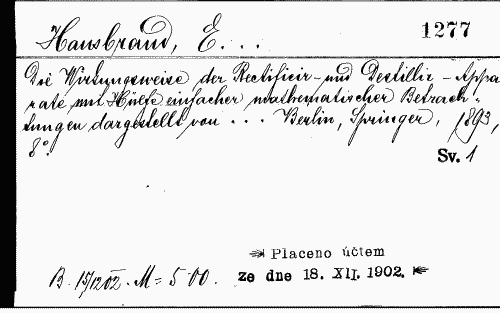 Hausbrand, E. . . . 1277
Die Wirkungsweise der Rectificir- und Destillir-Appa
rate mit Hülfe einfacher mathematischer Betrach-
tungen dargestellt von . . . Berlin, Springer, 1893,
8°. Sv. 1
Placeno účtem
B. 15/12 02. M = 5·00. ze dne 18. XII. 1902.